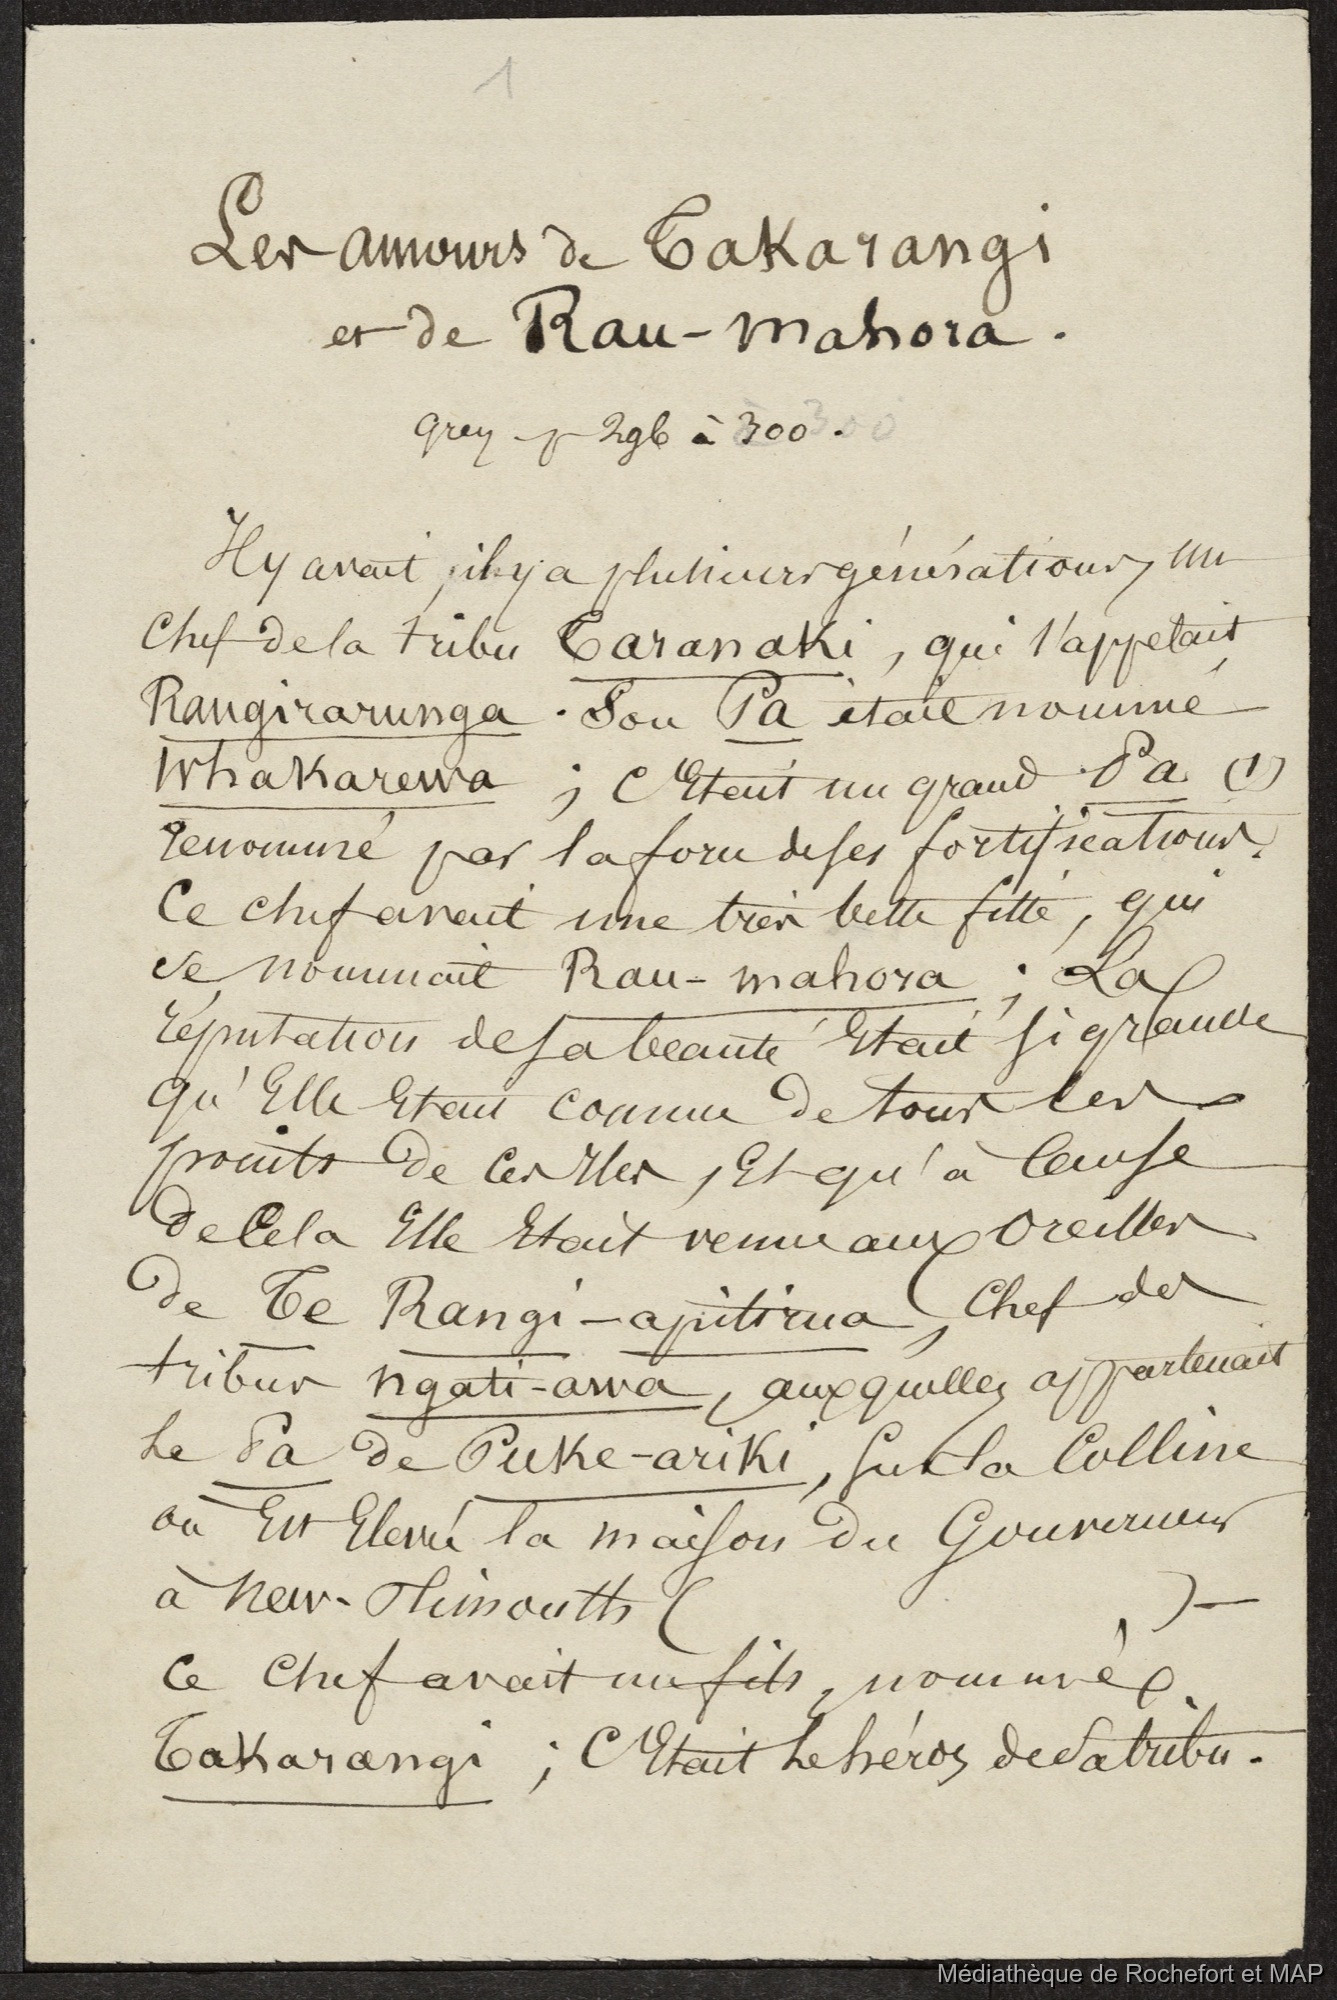 1
Les amours de Takarangi
et de Rau-mahora.
Grey p 296 à 300.
Il y avait, il y a plusieurs générations, un
Chef de la tribu Taranaki, qui s'appelait
Rangirarunga. Son Pa était nommé
Whakarewa ; C'Etait un grand Pa (1)
renommé par la force de ses fortifications.
Ce chef avait une très belle fille, qui
se nommait Rau-mahora ; La
réputation de sa beauté Etait si grande
qu'Elle Etait connue de tous les
points de ces Iles, Et qu'à Cause
de Cela Elle Etait venue aux Oreilles
de Te Rangi-apitirua, Chef des
tribus ngati-awa, auxquelles appartenait
Le Pa de Puke-ariki, sur la Colline
où Est Elevée la maison du Gouverneur
à New-Plimouth ( )—
Ce Chef avait un fils, nommé
Takarangi ; C'Etait Le héros de Sa tribu.
Médiathèque de Rochefort et MAP